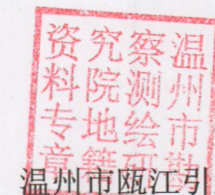 温州市勘
察测绘研
究院地籍
资料专章
温州市瓯江引